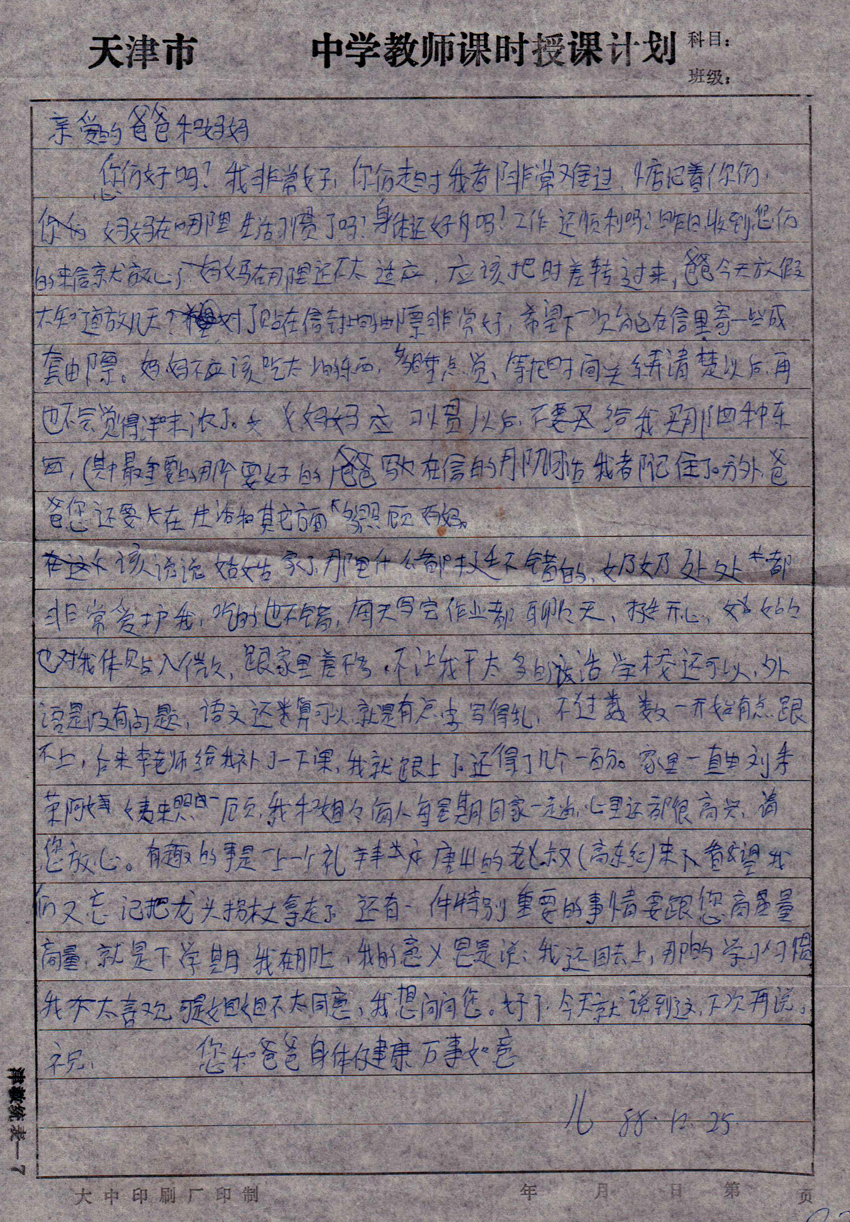 天津市 中学教师课时授课计划 科目：
班级：
亲爱的爸爸和妈妈
您们好吗？我非常好，你们走时我都非常难过，惦记着你们，
妈妈在哪里生活习惯了吗？身体还好吗？工作还顺利吗？昨日收到您们
的来信就放心了 妈妈在那里还不太适应，应该把时差转过来，爸爸今天放假
不知道放几天？对了贴在信封上的邮票非常好，希望下一次能在信里寄一些成
套邮票。妈妈不应该吃太 的东西，多睡点觉，等把时间关系弄清楚以后，再
也不会觉得洋味浓了。 妈妈 习惯以后，不要 给我买那四种东
西，(其中最重要的那个要好的) 爸爸 在信的 我都记住了。另外，爸
爸您还要在生活和其它方面多照顾妈妈。
该说说姑姑家了，那里什么都挺不错的，奶奶处处都
非常爱护我，吃的也不错，每天写完作业都聊聊天，挺开心，姑姑
也对我体贴入微，跟家里差不多，不让我干太多的活 学校还可以，外
语是没有问题，语文还算可以，就是有点字写得乱，不过数一开始有点跟
不上，后来李老师给我补了一下课，我就跟上了 还得了几个一百分。家里一直由刘秀
荣阿姨来照顾，我和姐姐每人每星期回家一走 心里还都很高兴，请
您放心。有趣的事是上一个礼拜 唐山的老叔(高 )来看望我
们又忘记把龙头拐杖拿走了 还有一件特别重要的事情要跟您商量
商量，就是下学期我在哪上，我的意义是说：我还回去上，那的学习习惯
我不太喜欢 可是姐姐不太同意，我想问问您。好了，今天就说到这，下次再说。
祝， 您和爸爸身体健康 万事如意
儿 88.12.25
津教统表—7
大中印刷厂印制 年 月 日 第 页